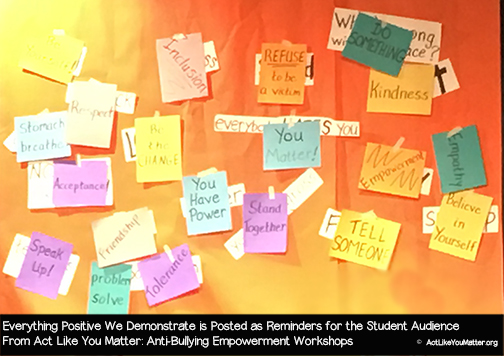 Inclusion
REFUSE
to be
a victim
DO
SOMETHING
Kindness
Respect
Stomach
breaths
Be the
CHANGE
everybody
you
You
Matter!
Empowerment
Empathy
Acceptance!
You
Have
Power
Stand
Together
Believe
in
Yourself
Friendship
TELL
SOMEONE
Speak
Up!
problem
solve
Tolerance
Everything Positive We Demonstrate is Posted as Reminders for the Student Audience
From Act Like You Matter: Anti-Bullying Empowerment Workshops
© ActLikeYouMatter.org